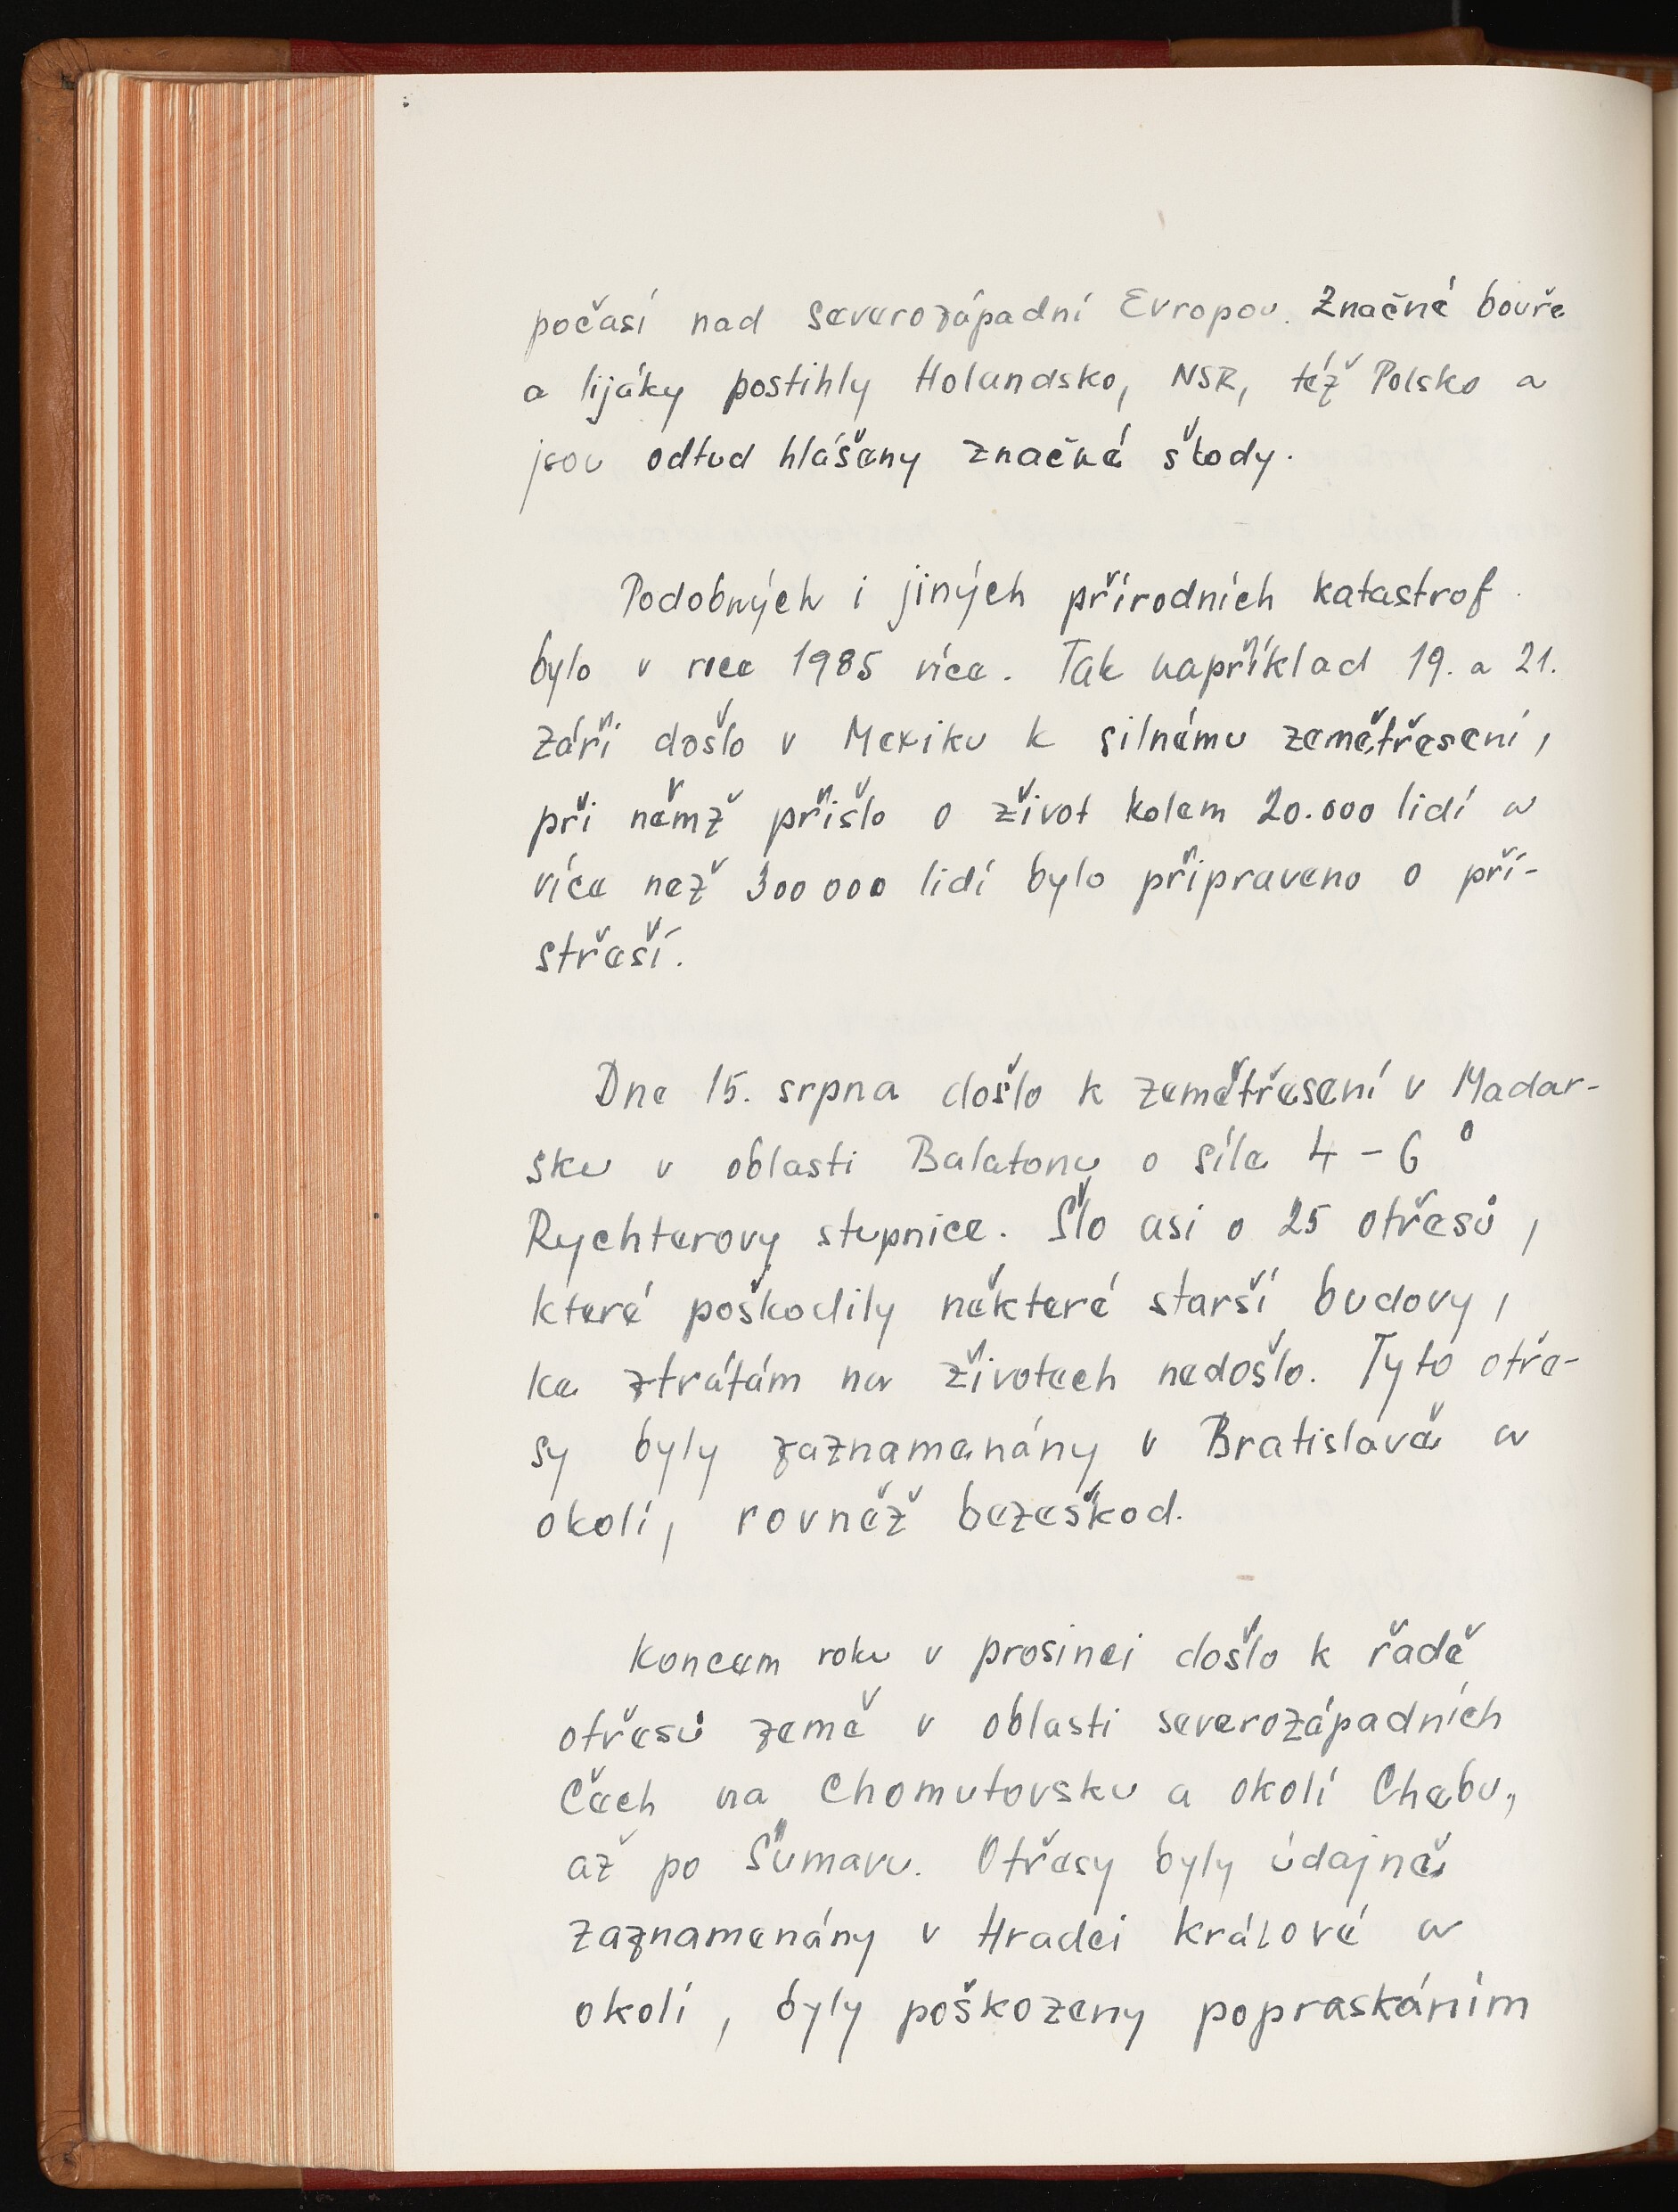 počasí nad severozápadní Evropou. Značné bouře
a lijáky postihly Holandsko, NSR, též Polsko a
jsou odtud hlášeny značné škody.
Podobných i jiných přírodních katastrof
bylo v roce 1985 více. Tak například 19. a 21.
září došlo v Mexiku k silnému zemětřesení,
při němž přišlo o život kolem 20.000 lidí a
více než 300 000 lidí bylo připraveno o pří-
střeší.
Dne 15. srpna došlo k zemětřesení v Madar-
sku v oblasti Balatonu o síle 4 - 6 °
Rychterovy stupnice. Šlo asi o 25 otřesů,
které poškodily některé starší budovy,
ke ztrátám na životech nedošlo. Tyto otře-
sy byly zaznamenány v Bratislavě a
okolí, rovněž bezeškod.
Koncem roku v prosinci došlo k řadě
otřesů země v oblasti severozápadních
Čech na Chomutovsku a okolí Chebu,
až po Šumavu. Otřesy byly údajně
zaznamenány v Hradci Králové a
okolí, byly poškozeny popraskáním